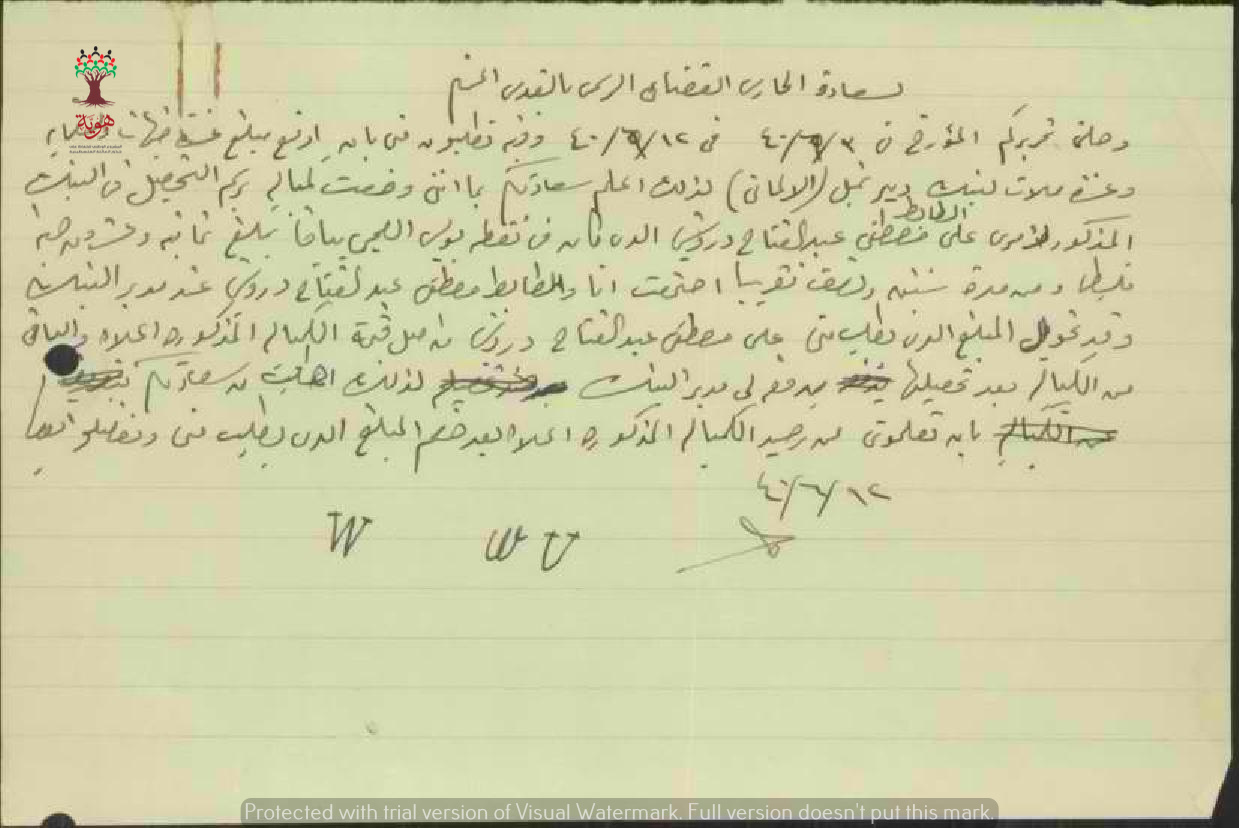 سعادة الحارس القضائي الرسمي بالقدس
وصلني تحريركم المؤرخ في ٤٠/٦/٣ في ٤٠/٦/١٢ وفيه تطلبون مني بان ادفع مبلغ خمسة جنيهات
وعشرة ملات لبنك تمبل (الالماني) لذلك اعلم سعادتكم بما انني وضعت كمبيالة برسم التحصيل في البنك
المذكور لامري على الضابط مصطفى عبدالفتاح درويش الذي كان في نقطة بوليس سابقا بمبلغ ثمانية وعشرون جنيه
فلسطيني ومن مدة سنتين ونصف تقريبا اجتمعت انا والضابط مصطفى عبد الفتاح درويش عند مدير البنك
وقد تحول المبلغ الذي يطلب مني على مصطفى عبدالفتاح درويش من اصل قيمة الكمبيالة المذكورة اعلاه والباقي
من الكمبيالة بعد تحصيلها يدفع لي مدير البنك لذلك اطلب من سعادتكم
بان تعلموني عن رصيد الكمبيالة المذكورة اعلاه بعد خصم المبلغ الذي يطلب مني وتفضلوا
٤٠/٦/١٢
هوية
Protected with trial version of Visual Watermark. Full version doesn't put this mark.